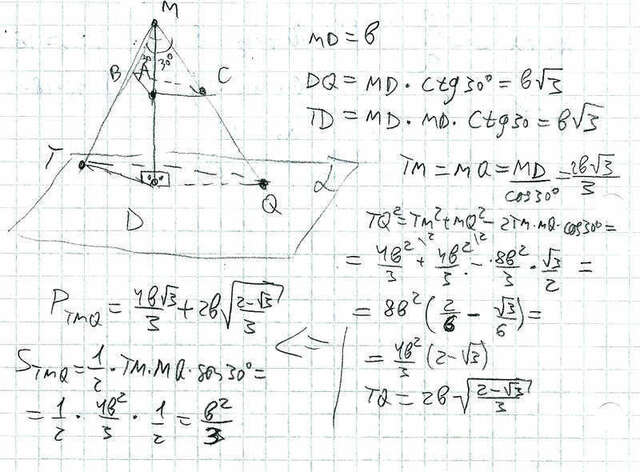 M
30 30°
B A C
T α
D Q
MD = b
DQ = MD · Ctg 30° = b√3
TD = MD · MD · Ctg 30 = b√3
TM = MQ = MD/cos 30° = 2b√3/3
TQ² = TM² + MQ² - 2TM·MQ·cos30° =
= 4b²/3 + 4b²/3 - 8b²/3 · √3/2 =
= 8b² (2/6 - √3/6) =
= 4b²/3 (2-√3)
TQ = 2b √((2-√3)/3)
<=
P_TMQ = 4b√3/3 + 2b √((2-√3)/3)
S_TMQ = 1/2 · TM · MQ · 30° =
= 1/2 · 4b²/3 · 1/2 = b²/3